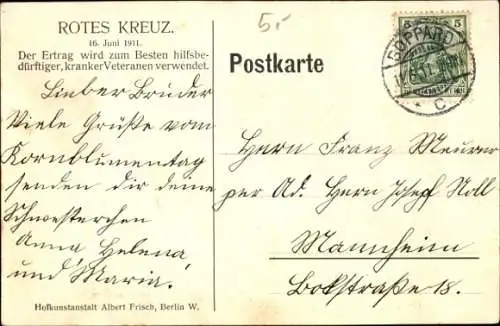 ROTES KREUZ.
16. Juni 1911.
Der Ertrag wird zum Besten hilfsbe-
dürftiger, kranker Veteranen verwendet.
5.-
Postkarte
5 5
BOPPARD
* C
Lieber Brüder
Viele Grüße vom
Kornblumentag
senden dir deine
Schwesterchen
Anna, Helena
und Maria.
Herrn Franz Meurer
per Ad. Herrn Josef Noll
Mannheim
Bokstraße 18.
Hofkunstanstalt Albert Frisch, Berlin W.